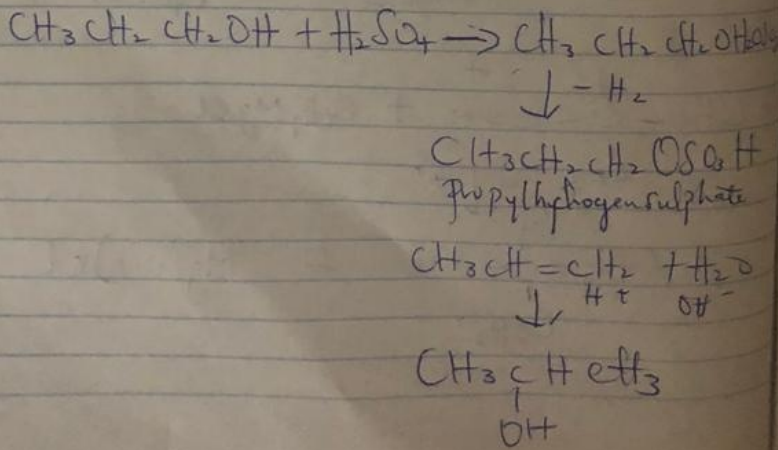 CH3 CH2 CH2 OH + H2SO4 → CH3 CH2 CH2 OH
↓ - H2
CH3CH2CH2 OSO3H
Propylhyhogensulphate
CH3CH = CH2 + H2O
↓ H+ OH-
CH3 C H CH3
OH